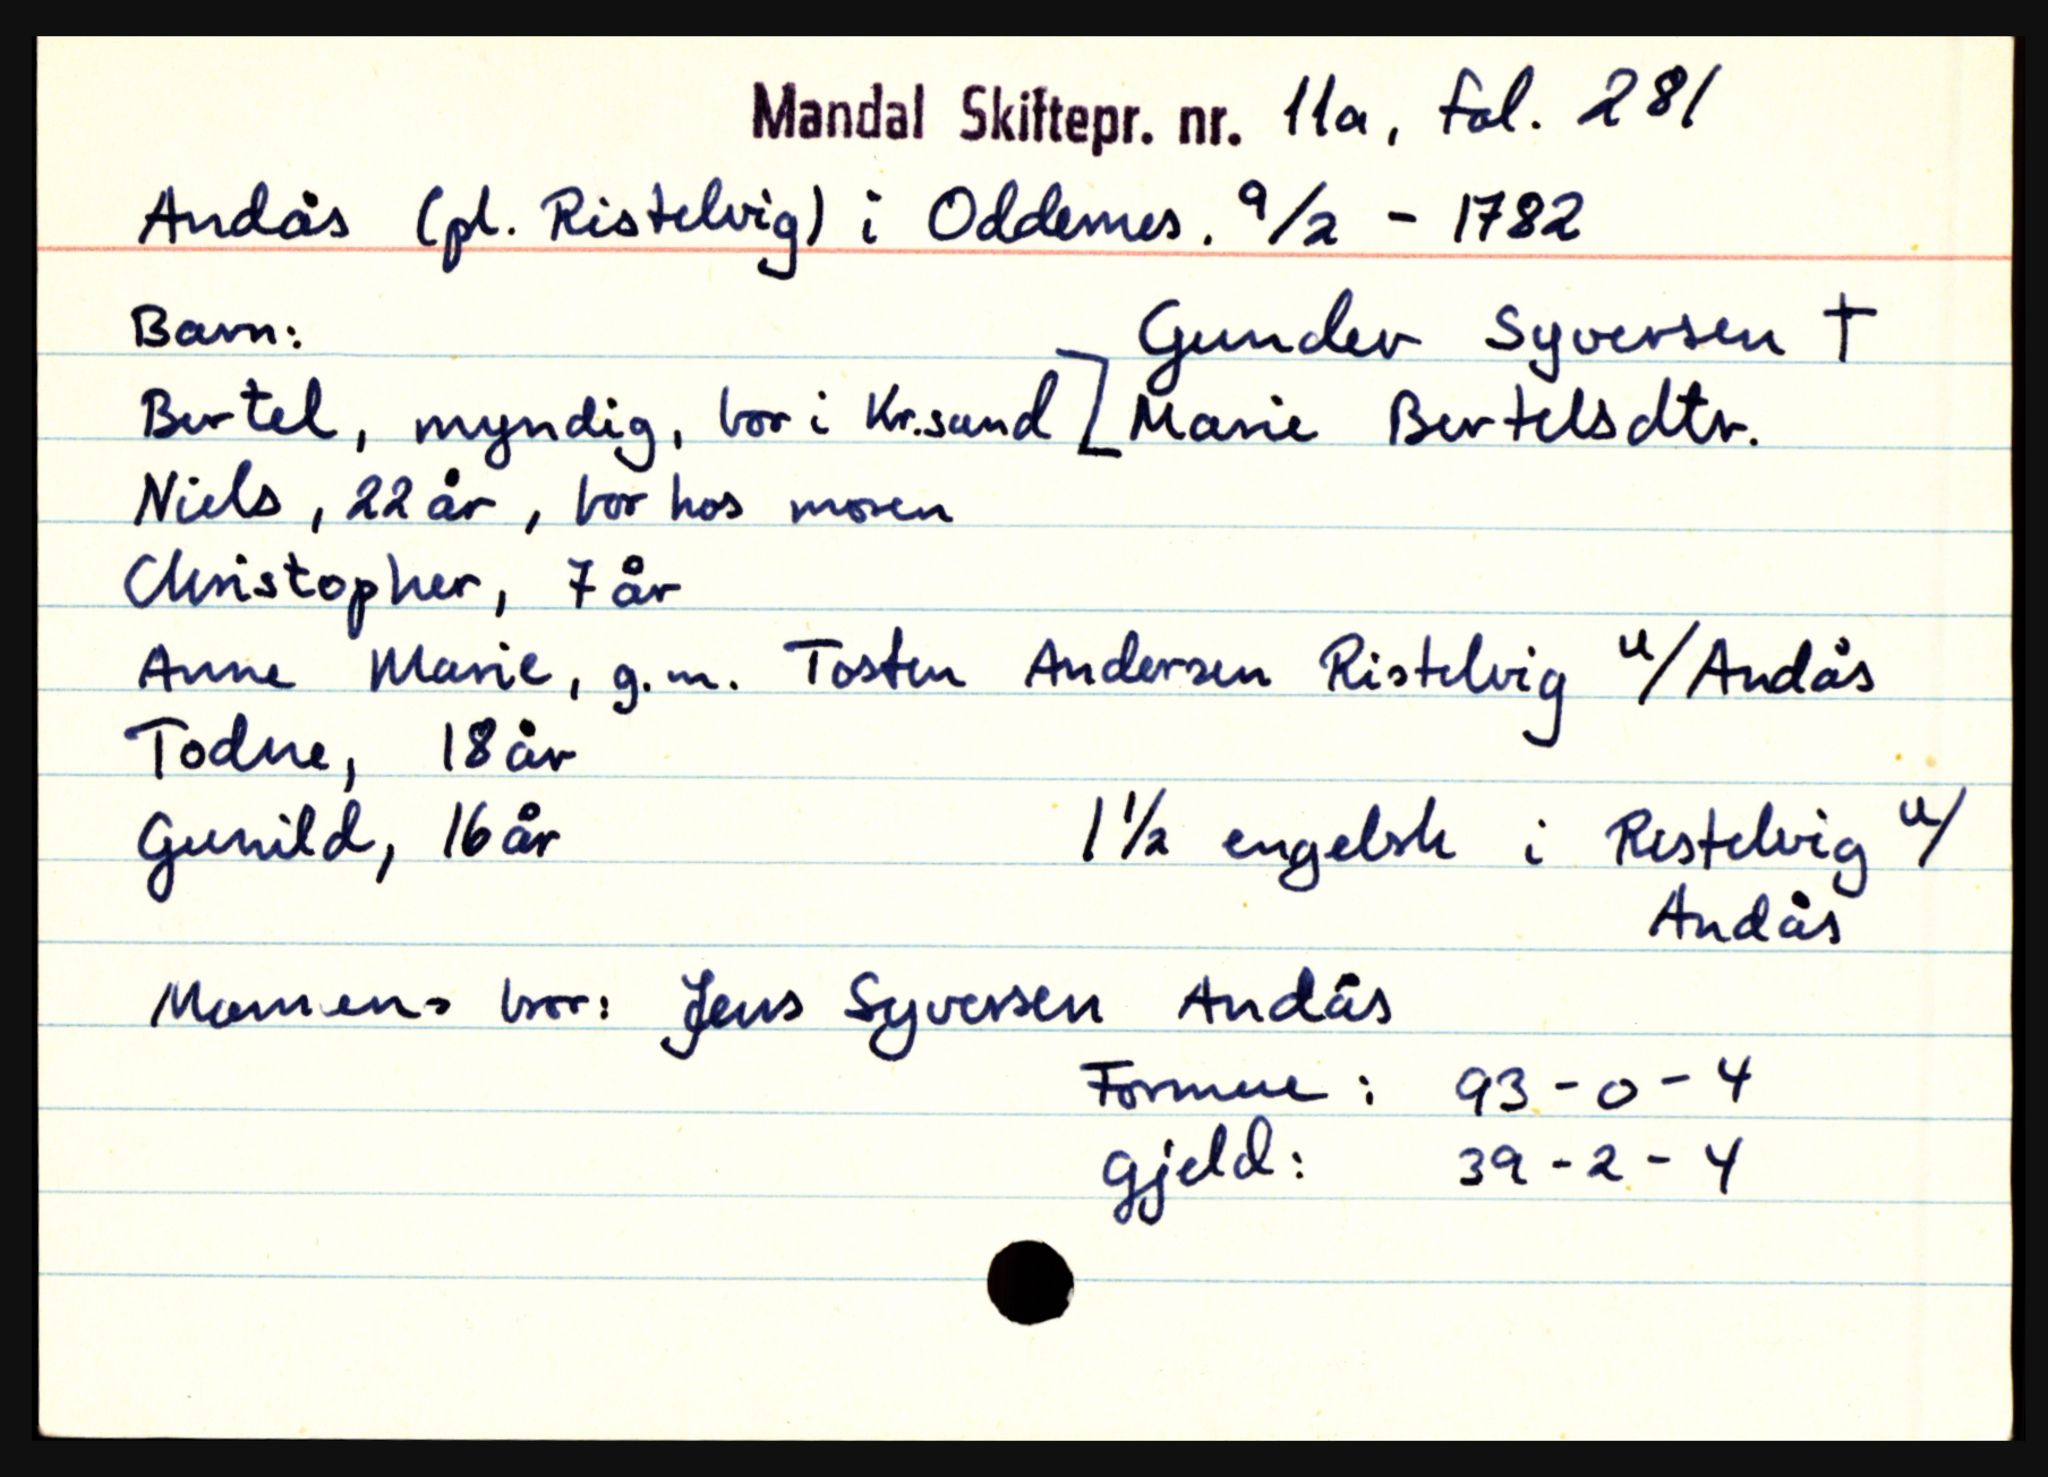 Mandal Skiftepr. nr. 11a, fol. 281
Andås (pl. Ristelvig) i Oddernes. 9/2 - 1782
Barn:
Gunder Syversen †
Bertel, myndig, bor i Kr.sand [ Marie Bertelsdtr.
Niels, 22 år, bor hos moren
Christopher, 7 år
Anne Marie, g.m. Tosten Andersen Ristelvig u/Andås
Todne, 18 år
Gunild, 16 år
1 1/2 engelsk i Ristelvig u/
Andås
Mannens bror: Jens Syversen Andås
Formue: 93-0-4
Gjeld: 39-2-4